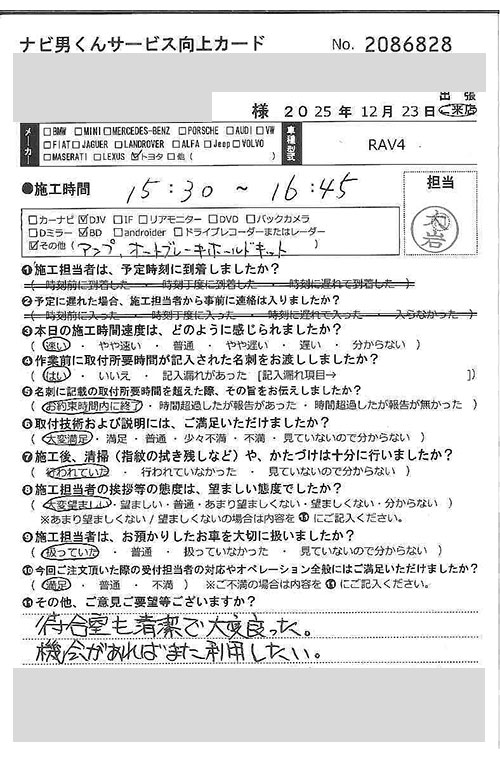 ナビ男くんサービス向上カード No. 2086828
出張
様 2025年12月23日 ご来店
メーカー □BMW □MINI □MERCEDES-BENZ □PORSCHE □AUDI □VW
□FIAT □JAGUER □LANDROVER □ALFA □Jeep □VOLVO
□MASERATI □LEXUS ☑トヨタ □他( )
車種型式 RAV4
●施工時間 15:30 ~ 16:45
担当
大岩
□カーナビ ☑DJV □IF □リアモニター □DVD □バックカメラ
□Dミラー ☑BD □androider □ドライブレコーダーまたはレーダー
☑その他( アンプ、オートブレーキホールドキット )
❶施工担当者は、予定時刻に到着しましたか?
( 時刻前に到着した ・ 時刻丁度に到着した ・ 時刻に遅れて到着した )
❷予定に遅れた場合、施工担当者から事前に連絡は入りましたか?
( 時刻前に入った ・ 時刻丁度に入った ・ 時刻に遅れて入った ・ 入らなかった )
❸本日の施工時間速度は、どのように感じられましたか?
( 速い ・ やや速い ・ 普通 ・ やや遅い ・ 遅い ・ 分からない )
❹作業前に取付所要時間が記入された名刺をお渡ししましたか?
( はい ・ いいえ ・ 記入漏れがあった [記入漏れ項目→ ])
❺名刺に記載の取付所要時間を超えた際、その旨をお伝えしましたか?
( お約束時間内に終了 ・ 時間超過したが報告があった ・ 時間超過したが報告が無かった )
❻取付技術および説明には、ご満足いただけましたか?
( 大変満足 ・ 満足 ・ 普通 ・ 少々不満 ・ 不満 ・ 見ていないので分からない )
❼施工後、清掃(指紋の拭き残しなど)や、かたづけは十分に行いましたか?
( 行われていた ・ 行われていなかった ・ 見ていないので分からない )
❽施工担当者の挨拶等の態度は、望ましい態度でしたか?
( 大変望ましい ・ 望ましい ・ 普通 ・ あまり望ましくない ・ 望ましくない ・ 分からない )
※あまり望ましくない/望ましくないの場合は内容を⓫にご記入ください。
❾施工担当者は、お預かりしたお車を大切に扱いましたか?
( 扱っていた ・ 普通 ・ 扱っていなかった ・ 見ていないので分からない )
❿今回ご注文頂いた際の受付担当者の対応やオペレーション全般にはご満足いただけましたか?
( 満足 ・ 普通 ・ 不満 ) ※ご不満の場合は内容を⓫にご記入ください。
⓫その他、ご意見ご要望等ございますか?
待合室も清潔で大変良った。
機会があればまた利用したい。